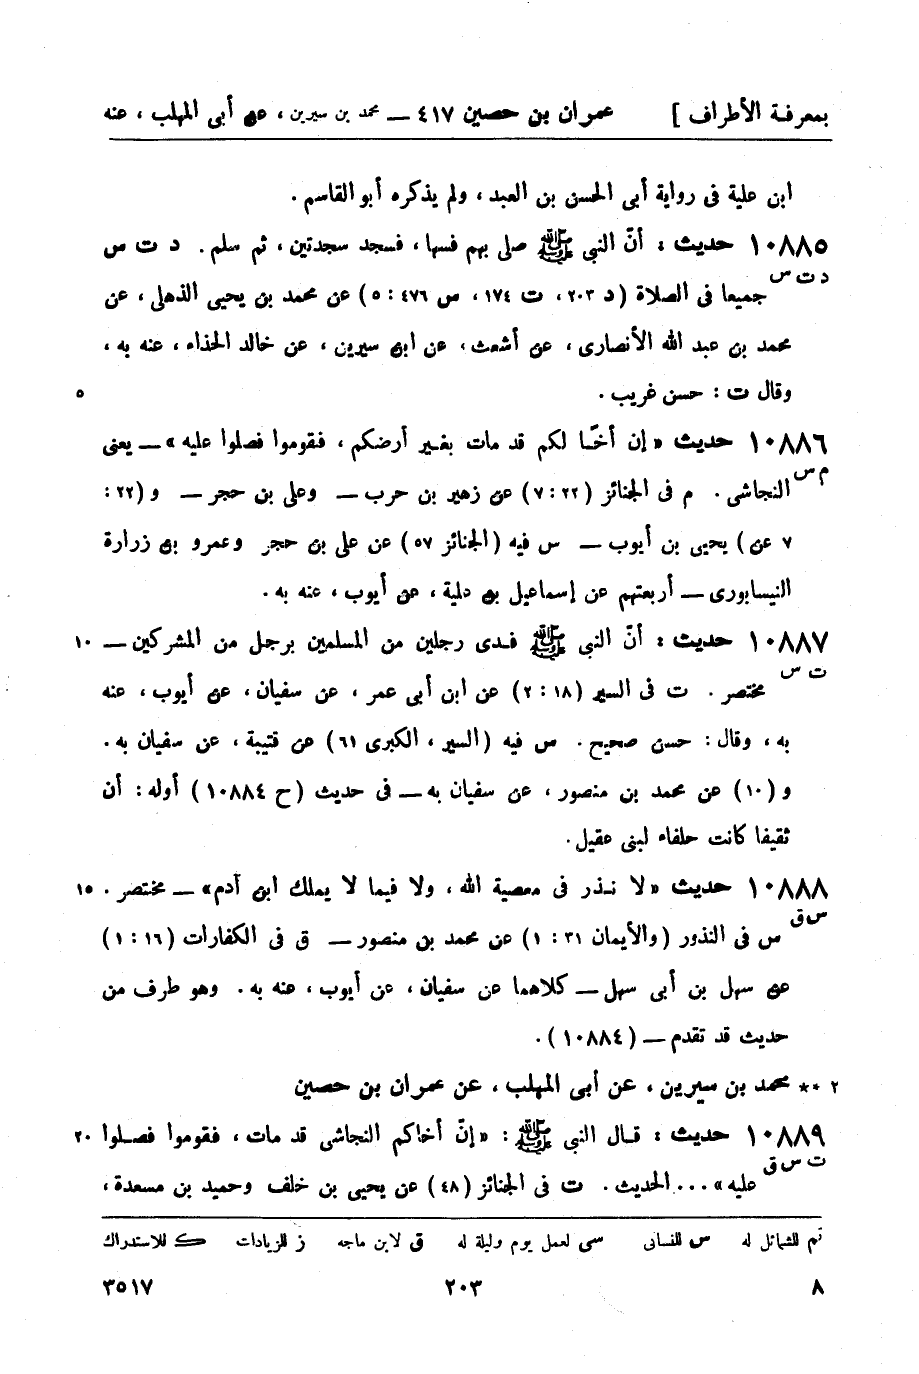 بمعرفة الأطراف ] عمران بن حصين ٤١٧ — محمد بن سيرين ، عن أبى المهلب ، عنه
ابن علية فى رواية أبى الحسن بن العبد ، ولم يذكره أبو القاسم .
١٠٨٨٥ حديث : أنّ النبى ﷺ صلى بهم فسها ، فسجد سجدتين ، ثم سلم . د ت س
د ت س
جميعا فى الصلاة (د ٢٠٣ ، ت ١٧٤ ، س ٤٧٦ : ٥) عن محمد بن يحيى الذهلى ، عن
محمد بن عبد الله الأنصارى ، عن أشعث ، عن ابن سيرين ، عن خالد الحذاء ، عنه به ،
وقال ت : حسن غريب . ٥
١٠٨٨٦ حديث « إن أخًا لكم قد مات بغير أرضكم ، فقوموا فصلوا عليه » — يعنى
م س
النجاشى . م فى الجنائز (٢٢ : ٧) عن زهير بن حرب — وعلى بن حجر — و (٢٢ :
٧ عن) يحيى بن أيوب — س فيه (الجنائز ٥٧) عن على بن حجر وعمرو بن زرارة
النيسابورى — أربعتهم عن إسماعيل بن علية ، عن أيوب ، عنه به .
١٠٨٨٧ حديث : أنّ النبى ﷺ فدى رجلين من المسلمين برجل من المشركين — ١٠
ت س
مختصر . ت فى السير (١٨ : ٢) عن ابن أبى عمر ، عن سفيان ، عن أيوب ، عنه
به ، وقال : حسن صحيح . س فيه (السير ، الكبرى ٦١) عن قتيبة ، عن سفيان به .
و (١٠) عن محمد بن منصور ، عن سفيان به — فى حديث (ح ١٠٨٨٤) أوله : أن
ثقيفا كانت حلفاء لبنى عقيل .
١٠٨٨٨ حديث « لا نذر فى معصية الله ، ولا فيما لا يملك ابن آدم » — مختصر . ١٥
س ق
س فى النذور (والأيمان ٣١ : ١) عن محمد بن منصور — ق فى الكفارات (١٦ : ١)
عن سهل بن أبى سهل — كلاهما عن سفيان ، عن أيوب ، عنه به . وهو طرف من
حديث قد تقدم — (١٠٨٨٤) .
٢ ** محمد بن سيرين ، عن أبى المهلب ، عن عمران بن حصين
١٠٨٨٩ حديث : قال النبى ﷺ : « إنّ أخاكم النجاشى قد مات ، فقوموا فصلوا ٢٠
ت س ق
عليه » ... الحديث . ت فى الجنائز (٤٨) عن يحيى بن خلف وحميد بن مسعدة ،
تم للشمائل له س للنسائى سى لعمل يوم وليلة له ق لابن ماجه ز للزيادات ك للاستدراك
٨ ٢٠٣ ٣٥١٧